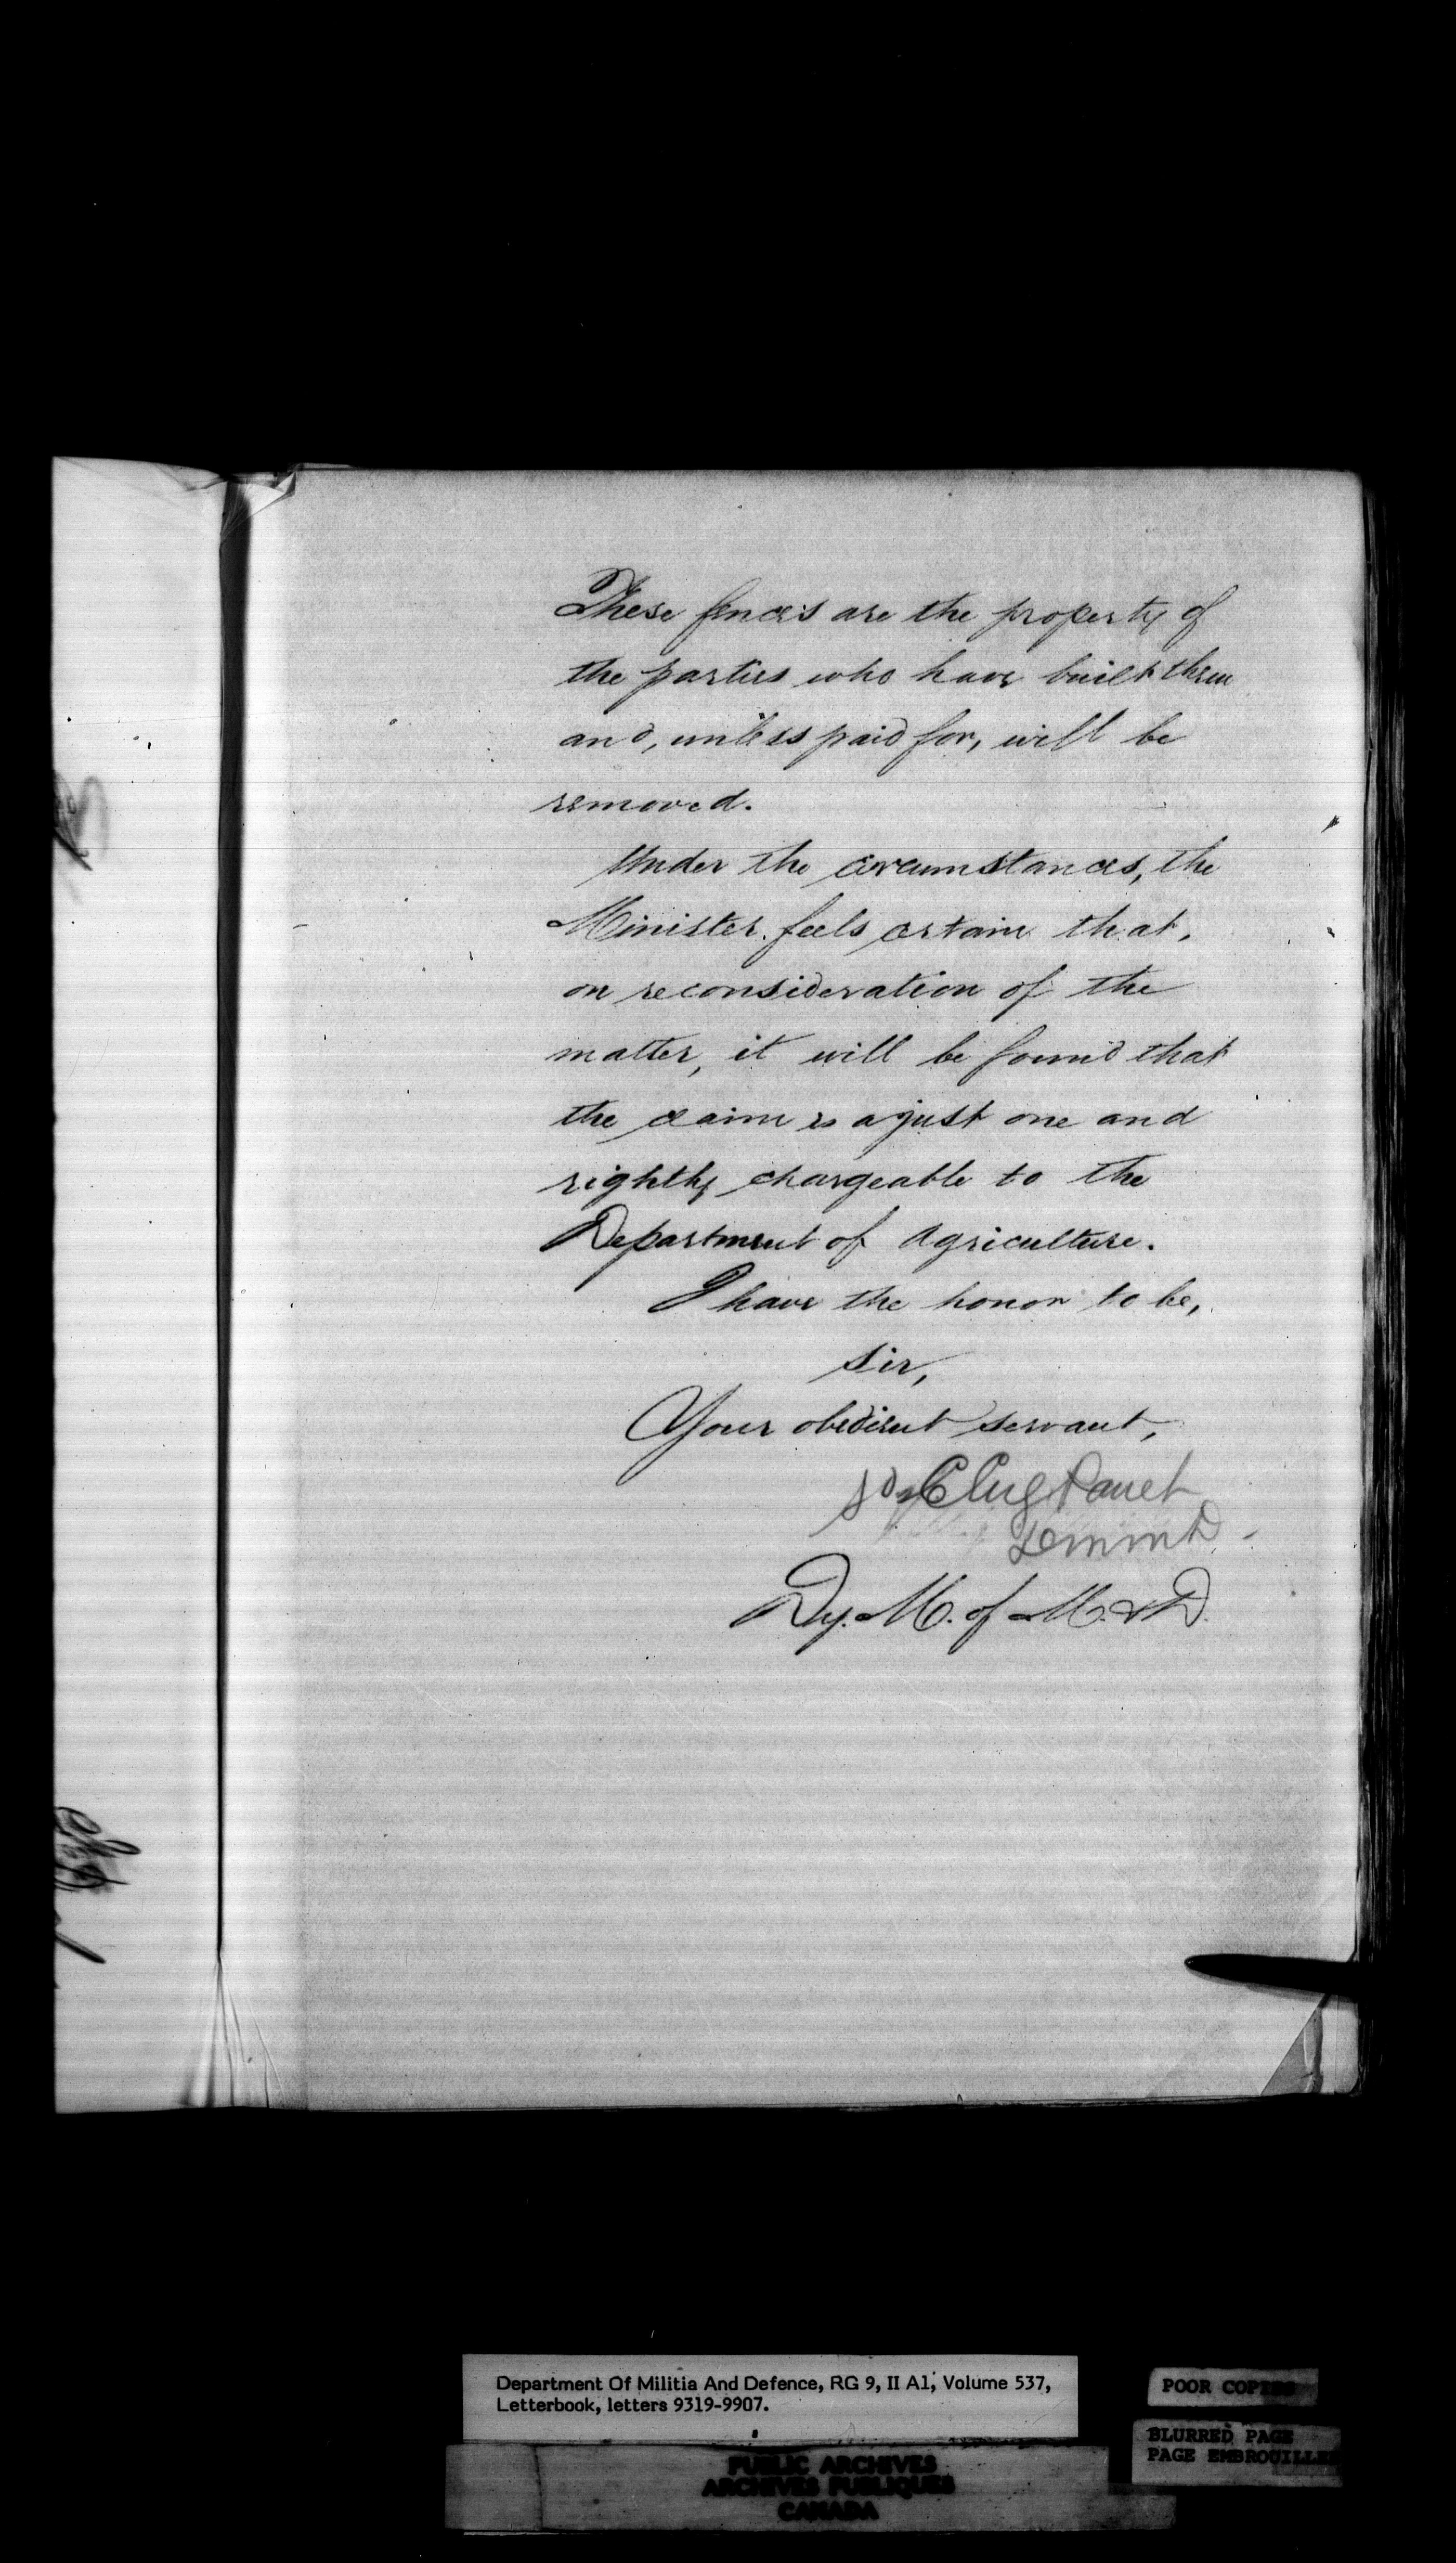 These fences are the property of
the parties who have built them
and, unless paid for, will be
removed.
Under the circumstances, the
Minister feels certain that,
on reconsideration of the
matter, it will be found that
the claim is a just one and
rightly chargeable to the
Department of Agriculture.
I have the honor to be,
Sir,
Your obedient servant,
sd C Eug Panet
DMM&D
Dy. M. of M. & D.
Department Of Militia And Defence, RG 9, II A1, Volume 537,
Letterbook, letters 9319-9907.
POOR COPIES
BLURRED PAGE
PAGE EMBROUILLEE
PUBLIC ARCHIVES
ARCHIVES PUBLIQUES
CANADA